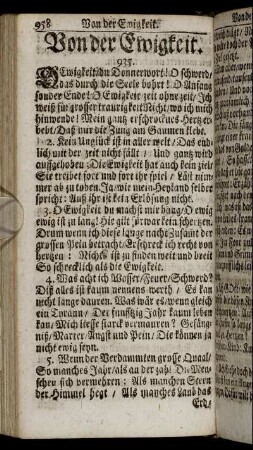 958 Von der Ewigkeit.
Von der Ewigkeit.
935.
O Ewigkeit/du Donnerwort! O schwerd/
das durch die Seele bohrt! O Anfang
sonder Ende! O Ewigkeit/zeit ohne zeit/ Ich
weiß für grosser traurigkeit Nicht/wo ich mich
hinwende! Mein ganz erschrocknes Hertz er-
bebt/ Daß mir die Zung am Gaumen klebt.
2. Kein Unglück ist in aller welt/ Das end-
lich mit der zeit nicht fält / Und gantz wird
auffgehoben Die Ewigkeit hat auch kein ziel
Sie treibet fort und fort ihr spiel / Läst nim-
mer ab zu toben Ja/wie mein Heyland selber
spricht: Auß ihr ist kein Erlösung nicht.
3. O Ewigkeit du machst mir bang/O ewig
ewig ist zu lang! Hie gilt fürwar kein schertzen.
Drum wenn ich diese lange nacht Zusamt der
grossen Pein betracht/ Erschreck ich recht von
hertzen : Nichts ist zu finden weit und breit
So schrecklich als die Ewigkeit.
4. Was acht ich Wasser/Feuer/Schwerd?
Diß alles ist kaum nennens werth / Es kan
nicht lange dauren. Was wär es/wenn gleich
ein Tyrann/ Der funfftzig Jahr kaum leben
kan/ Mich liesse starck vermauren? Gefäng-
niß/ Marter Angst und Pein/ Die können ja
nicht ewig seyn.
5. Wenn der Verdammten grosse Quaal/
So manches Jahr/als an der zahl Die Men-
schen sich vermehren : Als manchen Stern
der Himmel hegt / Als manches Laub das
Erd/